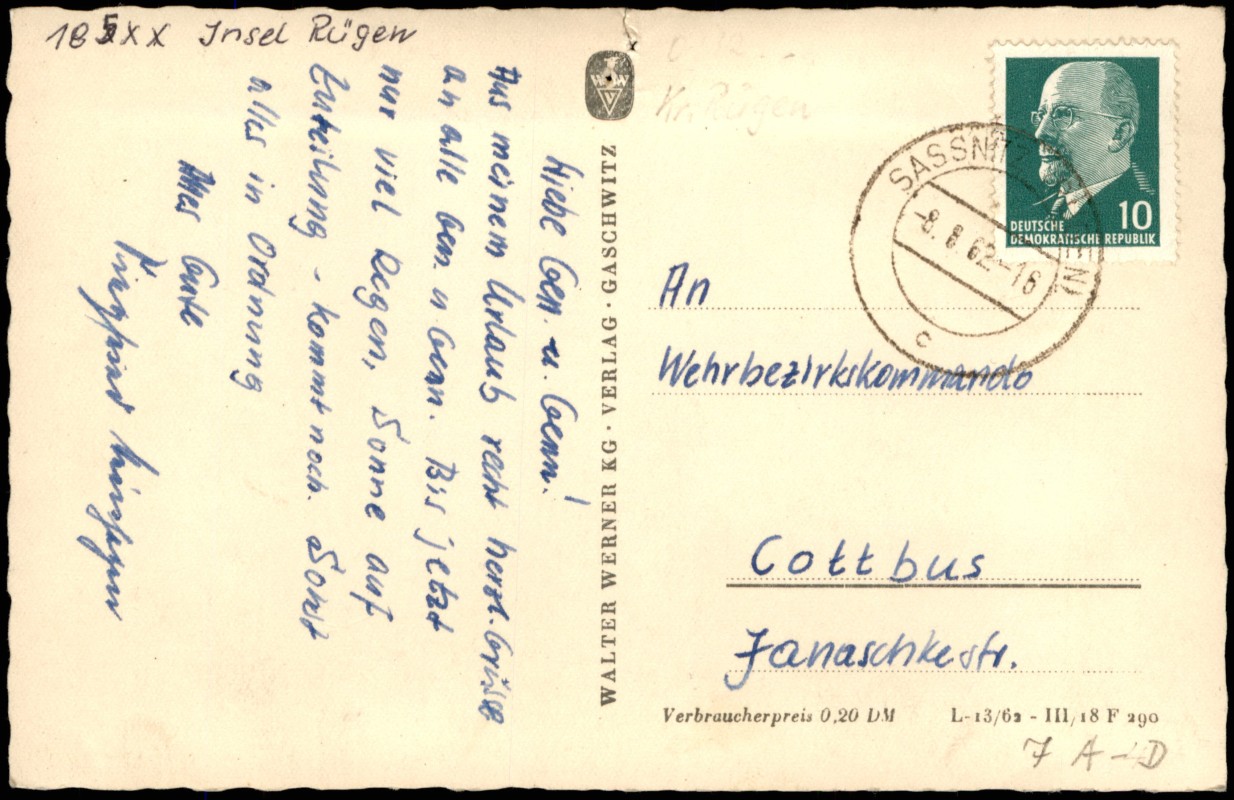 185XX Insel Rügen
Liebe Gen. u. Genn!
Aus meinem Urlaub recht herzl. Grüße
an alle Gen. u Genn. Bis jetzt
nur viel Regen, Sonne auf
Zuteilung - kommt noch. Sonst
alles in Ordnung
Alles Gute
WALTER WERNER KG · VERLAG · GASCHWITZ
Kr. Rügen
DEUTSCHE
DEMOKRATISCHE REPUBLIK
10
SASSNITZ
-8.8.62-16
c
An
Wehrbezirkskommando
Cottbus
Janaschkestr.
Verbraucherpreis 0,20 DM
L-13/62 - III/18 F 290
7 A-D